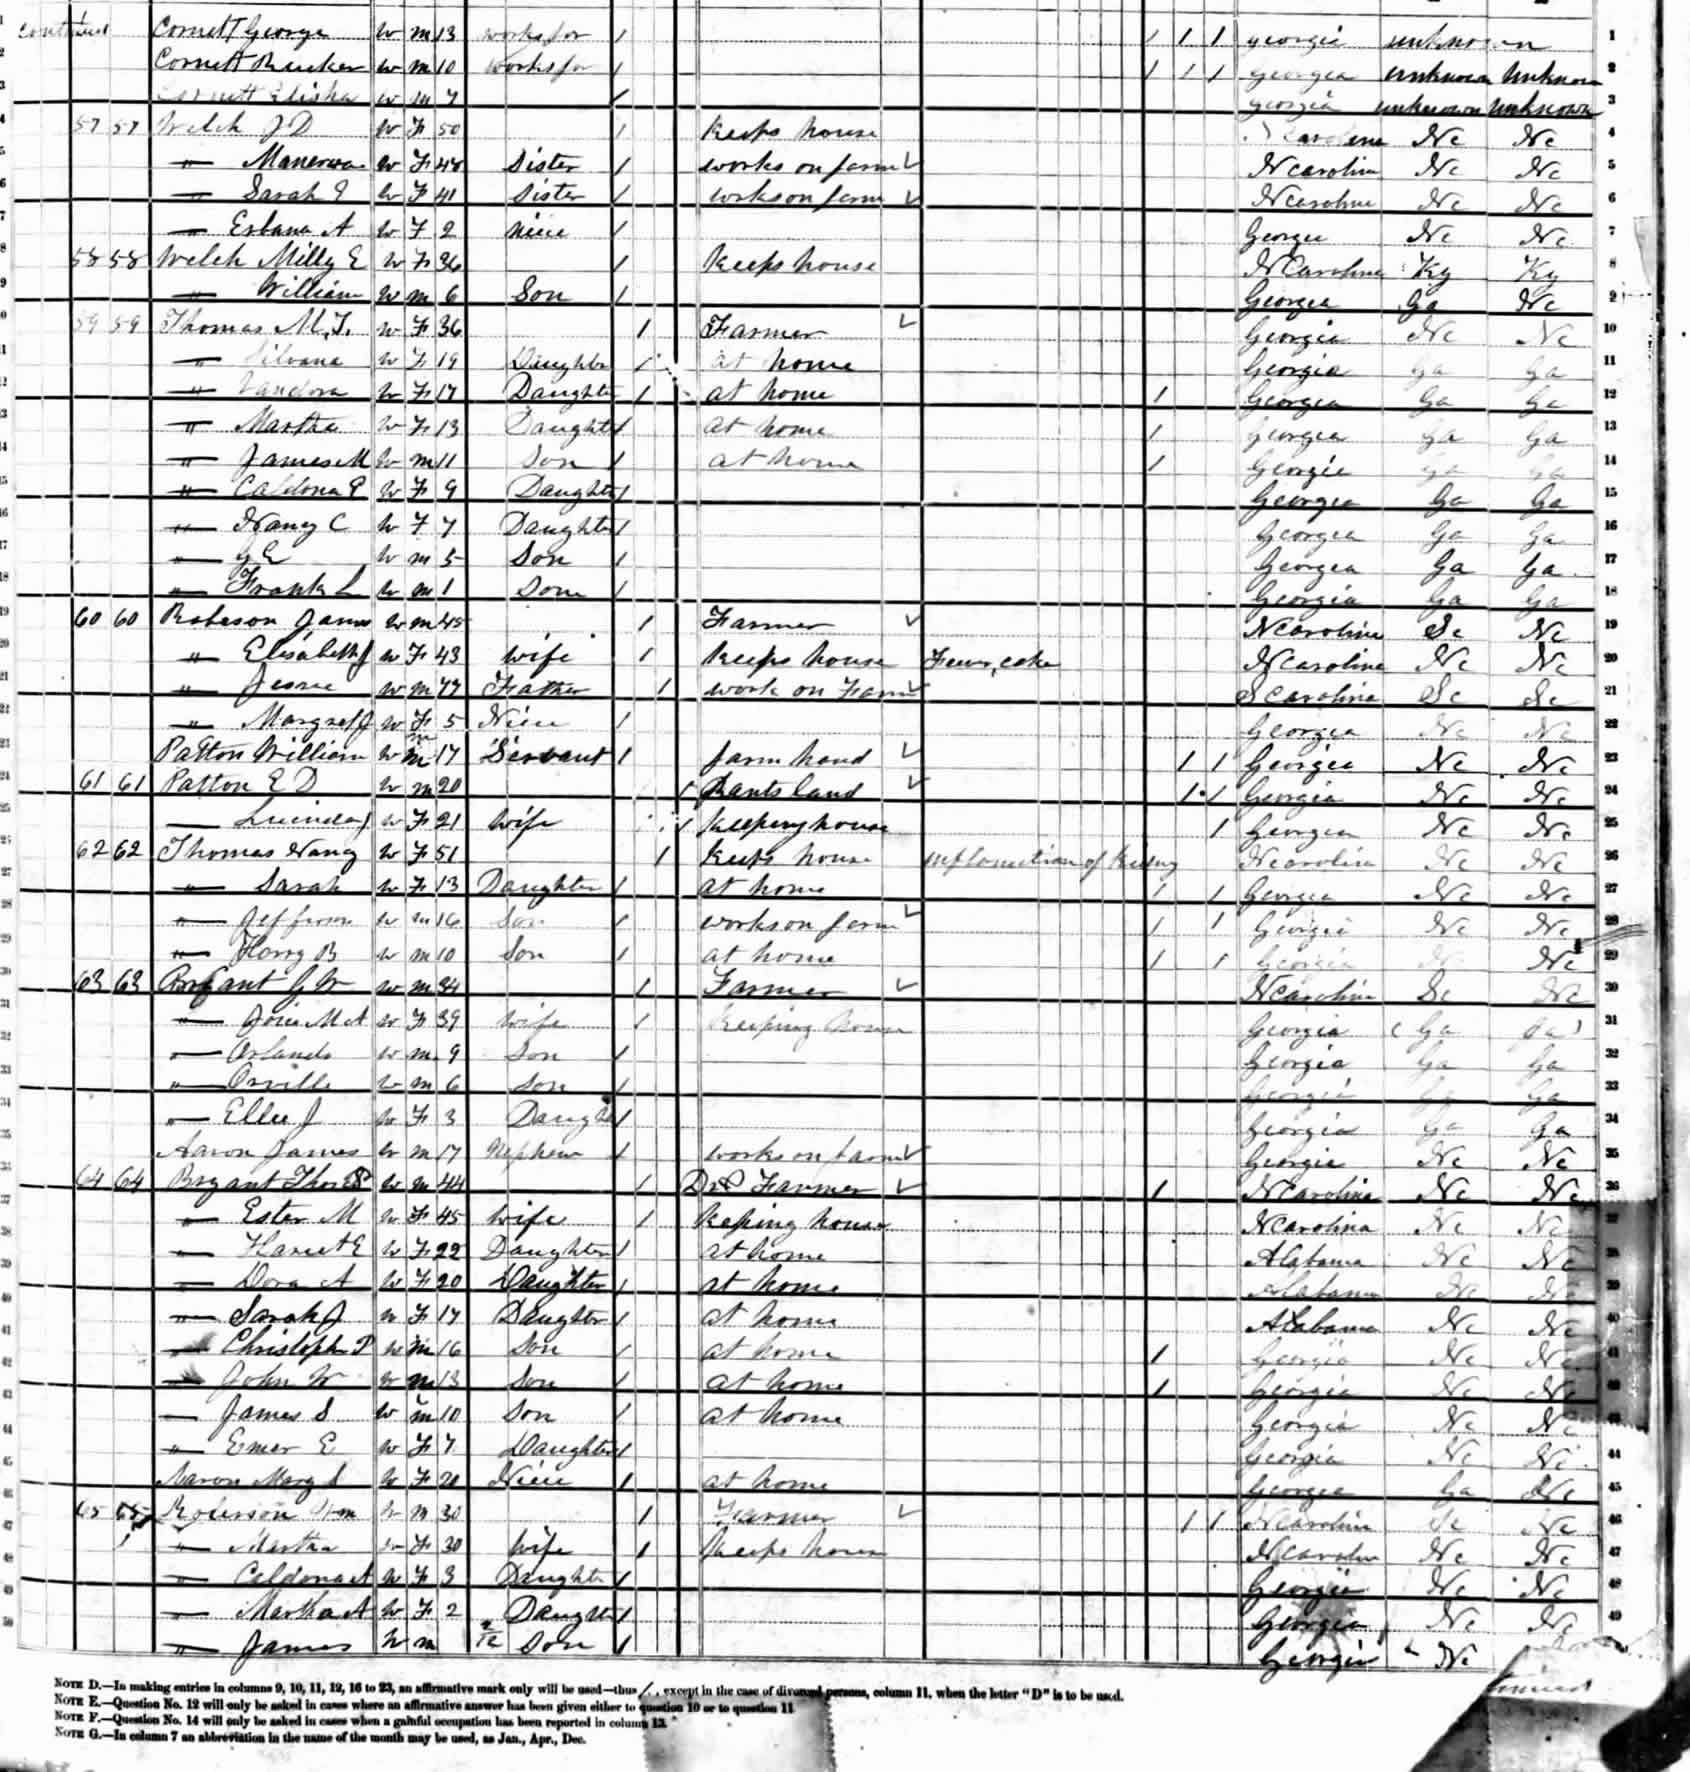 1 continued Cornett George W m 13 works for / 1 1 1 georgia unknown 1
2 Cornett W m 10 works for / 1 1 1 Georgia unknown unknown 2
3 Cornett Elisha W m 7 / georgia unknown unknown 3
4 57 57 Welch J D W F 50 / Keeps house N Carolina Nc Nc 4
5 " Manerva W F 48 Sister / works on farm ✓ N carolina Nc Nc 5
6 " Sarah E W F 41 Sister / works on farm ✓ N carolina Nc Nc 6
7 " A W F 2 niece / Georgia Nc Nc 7
8 58 58 Welch Milly E W F 36 / Keeps house N Carolina Ky Ky 8
9 " William W m 6 Son / Georgia Ga Nc 9
10 59 59 Thomas M. F. W F 36 / Farmer ✓ Georgia Nc Nc 10
11 " Silvana W F 19 Daughter / at home Georgia Ga Ga 11
12 " Vandora W F 17 Daughter / at home 1 Georgia Ga Ga 12
13 " Martha W F 13 Daughter / at home 1 Georgia Ga Ga 13
14 " James M W m 11 Son / at home 1 Georgia Ga Ga 14
15 " Caldona E W F 9 Daughter / Georgia Ga Ga 15
16 " Nancy C W F 7 Daughter / Georgia Ga Ga 16
17 " G E W m 5 Son / Georgia Ga Ga 17
18 " Frank L W m 1 Son / Georgia Ga Ga 18
19 60 60 Roberson James W m 45 / Farmer ✓ N Carolina Sc Nc 19
20 " Elisabeth J W F 43 wife / Keeps house N Carolina Nc Nc 20
21 " Jessee W m 77 Father / work on Farm ✓ S carolina Sc Sc 21
22 " Margret J W F 5 Niece / Georgia Nc Nc 22
23 Patton William W m 17 Servant / farm hand ✓ 1 1 Georgia Nc Nc 23
24 61 61 Patton E D W m 20 / Rants land ✓ 1 1 Georgia Nc Nc 24
25 Lucinda J W F 21 wife / Keeping house 1 Georgia Nc Nc 25
26 62 62 Thomas Nancy W F 51 / Keeps house inflamation of N carolina Nc Nc 26
27 " Sarah W F 13 Daughter / at home 1 1 Georgia Nc Nc 27
28 " Jefferson W m 16 Son / works on farm ✓ 1 1 Georgia Nc Nc 28
29 " Harry B W m 10 Son / at home 1 1 Georgia Nc 29
30 63 63 Bryant J W W m 34 / Farmer ✓ N Carolina Sc Nc 30
31 " M A W F 39 wife / Keeping house Georgia Ga Ga 31
32 " Orlando W m 9 Son / Georgia Ga Ga 32
33 " Orville W m 6 Son / Georgia Ga Ga 33
34 " Ellie J W F 3 Daughter / Georgia Ga Ga 34
35 Aaron James W m 17 Nephew / works on farm ✓ Georgia Nc Nc 35
36 64 64 Bryant Thos P W m 44 / Dr & Farmer ✓ 1 N Carolina Nc Nc 36
37 " Ester M W F 45 wife / Keping house N Carolina Nc Nc 37
38 " Hariet E W F 22 Daughter / at home Alabama Nc Nc 38
39 " Dora A W F 20 Daughter / at home Alabama Nc Nc 39
40 " Sarah J W F 17 Daughter / at home Alabama Nc Nc 40
41 " Christopher P W m 16 Son / at home 1 Georgia Nc Nc 41
42 " John W W m 13 Son / at home 1 Georgia Nc Nc 42
43 " James S W m 10 Son / at home Georgia Nc Nc 43
44 " Emer E W F 7 Daughter / Georgia Nc Nc 44
45 Aaron Mary S W F 20 Niece / at home Georgia Ga Nc 45
46 65 65 Roberson Wm W m 30 / Farmer ✓ 1 1 N Carolina Sc Nc 46
47 " Martha W F 30 wife / Keeps house N Carolina Nc Nc 47
48 " Caldona A W F 3 Daughter / Georgia Nc Nc 48
49 " Martha A W F 2 Daughter / Georgia Nc Nc 49
50 " James W m 2/12 Son / Georgia Nc
NOTE D.—In making entries in columns 9, 10, 11, 12, 16 to 23, an affirmative mark only will be used—thus /, except in the case of divorced persons, column 11, when the letter "D" is to be used.
NOTE E.—Question No. 12 will only be asked in cases where an affirmative answer has been given either to question 10 or to question 11
NOTE F.—Question No. 14 will only be asked in cases when a gainful occupation has been reported in column 13.
NOTE G.—In column 7 an abbreviation in the name of the month may be used, as Jan., Apr., Dec.